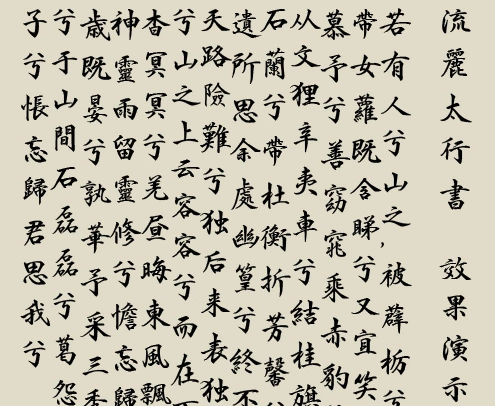 流麗太行書 效果演示
若有人兮山之，被薜栃兮
帶女蘿既含睇兮又宜笑
慕予兮善窈窕乘赤豹
从文狸辛夷車兮結桂旗
石蘭兮帶杜衡折芳馨兮
遺所思余處幽篁兮終不
天路險難兮独后来表独
兮山之上云容容兮而在
杳冥冥兮羌昼晦東風飄
神靈雨留靈修兮憺忘歸
歳既晏兮孰華予采三秀
兮于山間石磊磊兮葛怨
子兮悵忘歸君思我兮